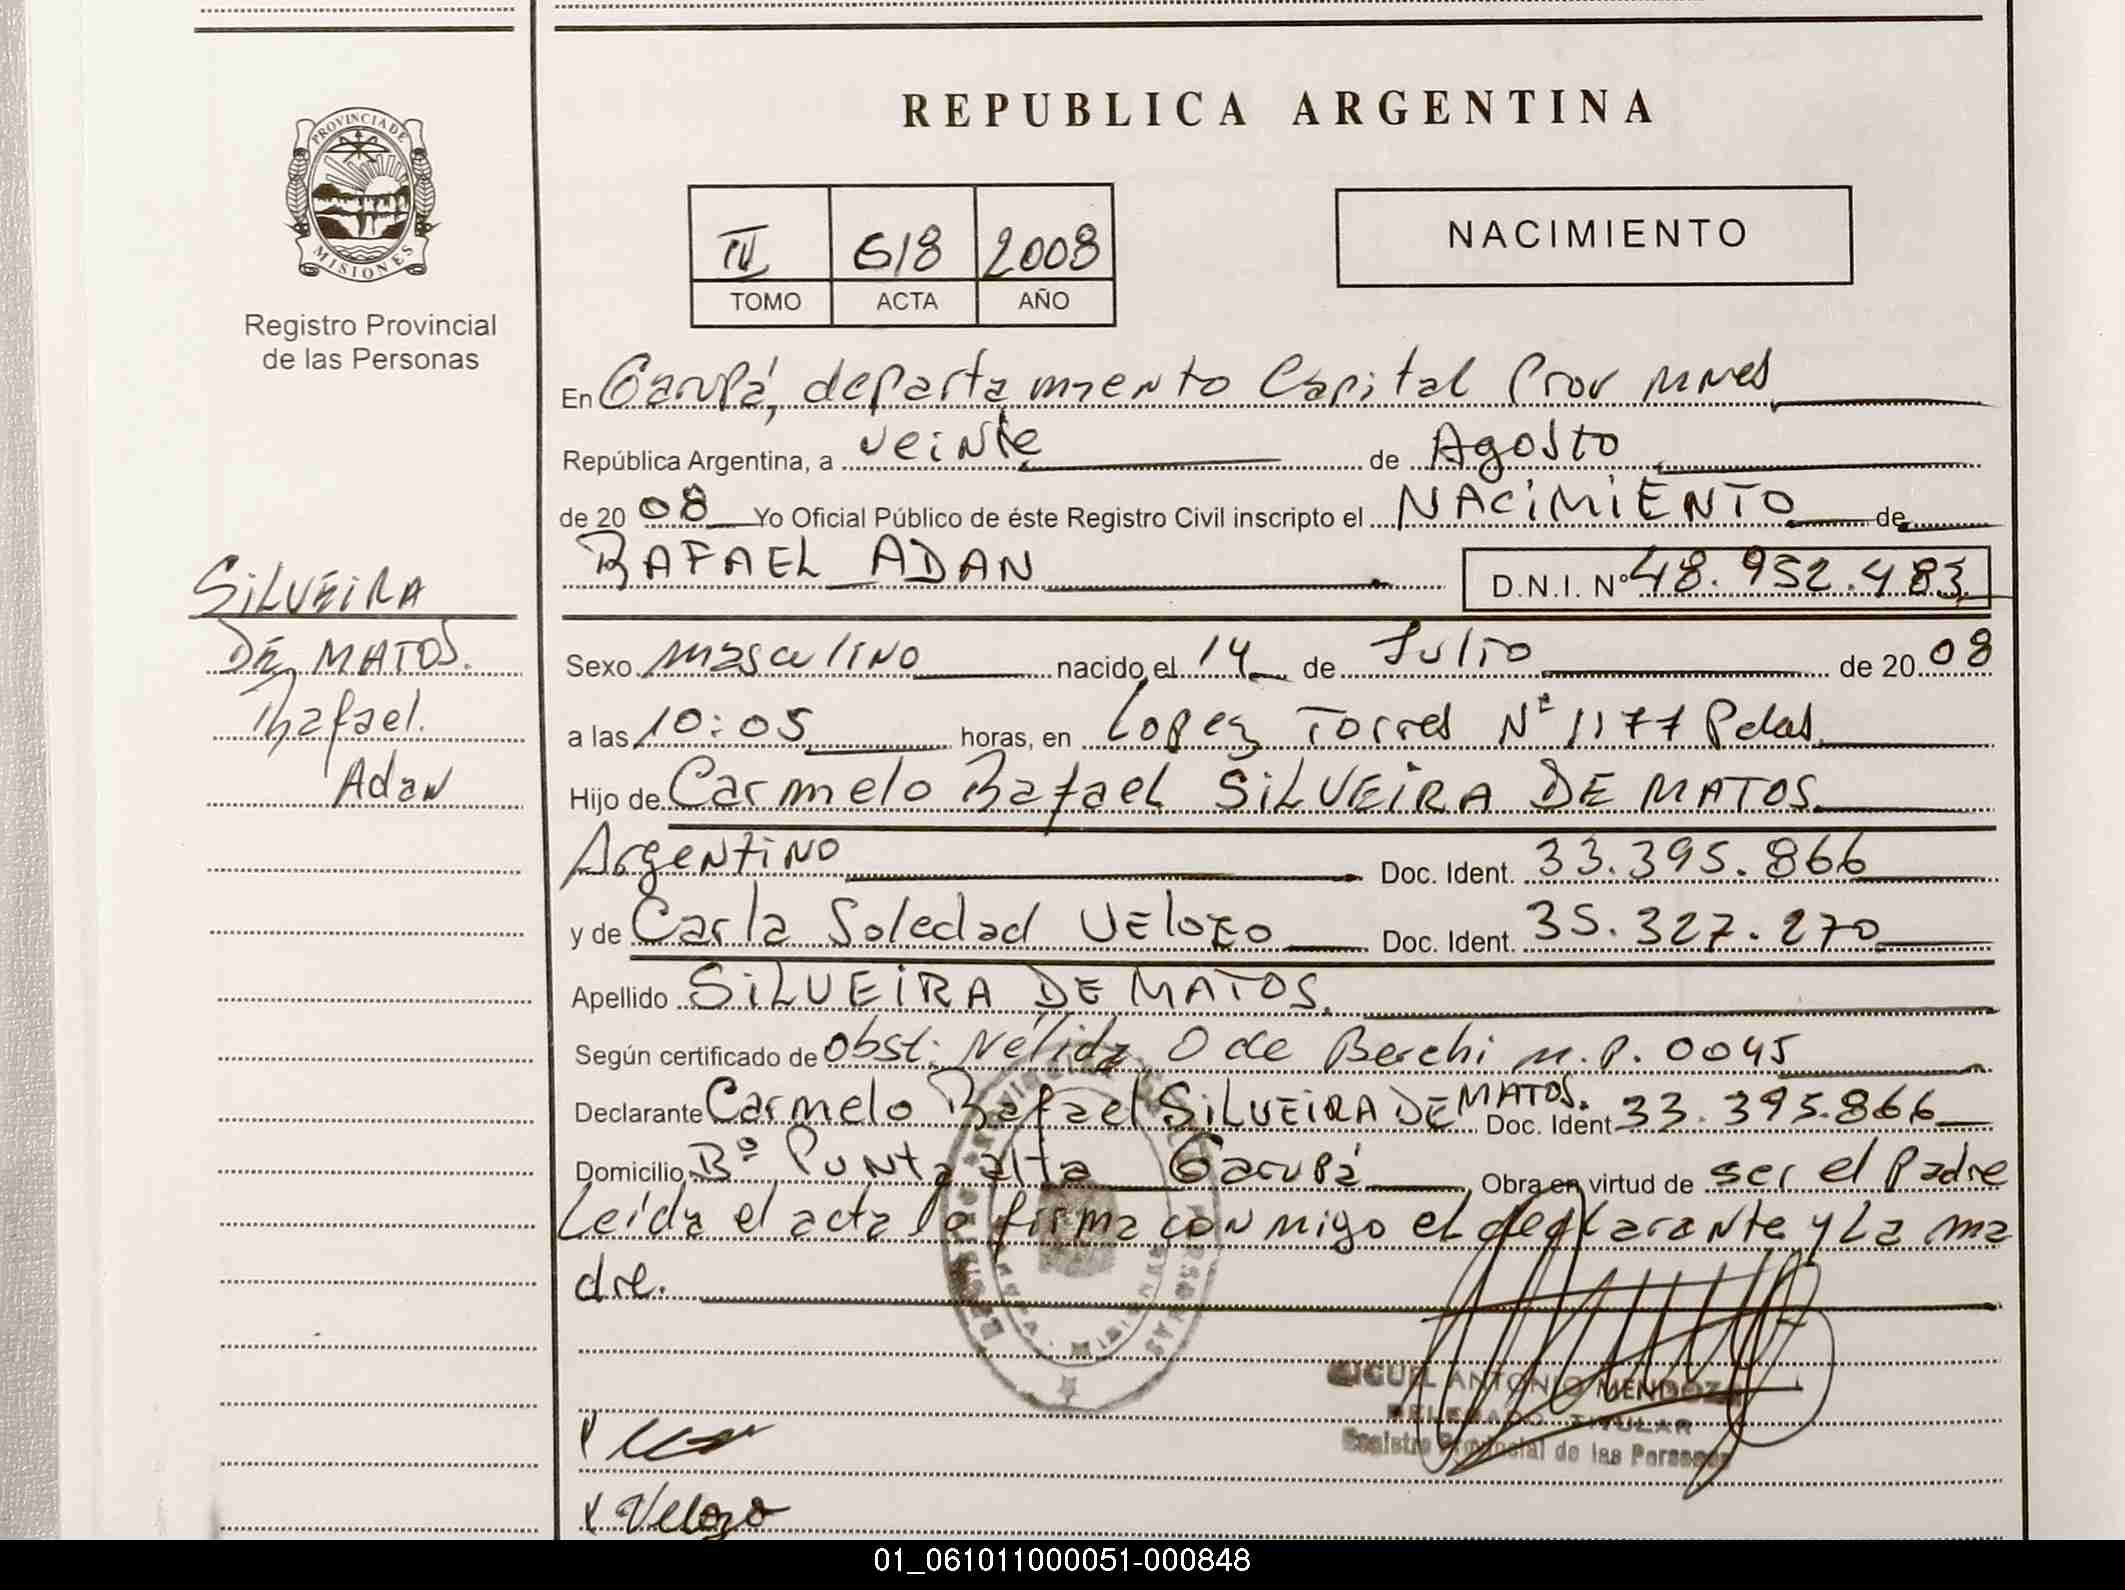 REPUBLICA ARGENTINA
PROVINCIA DE
MISIONES
Registro Provincial
de las Personas
IV 618 2008
TOMO ACTA AÑO
NACIMIENTO
En Garupá, departamiento Capital Prov Mnes
República Argentina, a veinte de Agosto
de 2008 Yo Oficial Público de éste Registro Civil inscripto el NACIMIENTO de
RAFAEL ADAN D.N.I. Nº 48.952.483
SILVEIRA
DE MATOS.
Rafael.
Adan
Sexo masculino nacido el 14 de Julio de 2008
a las 10:05 horas, en Lopez Torres Nº 1177 Pdas
Hijo de Carmelo Rafael SILVEIRA DE MATOS
Argentino Doc. Ident. 33.395.866
y de Carla Soledad VELOZO Doc. Ident. 35.327.270
Apellido SILVEIRA DE MATOS.
Según certificado de obst. Nélida O de Berchi M.P. 0045
Declarante Carmelo Rafael SILVEIRA DE MATOS. Doc. Ident. 33.395.866
Domicilio Bº Punta alta Garupá Obra en virtud de ser el Padre
Leída el acta la firma conmigo el declarante y La ma
dre.
MIGUEL ANTONIO MENDOZA
DELEGADO TITULAR
Registro Provincial de las Personas
Velozo
01_061011000051-000848